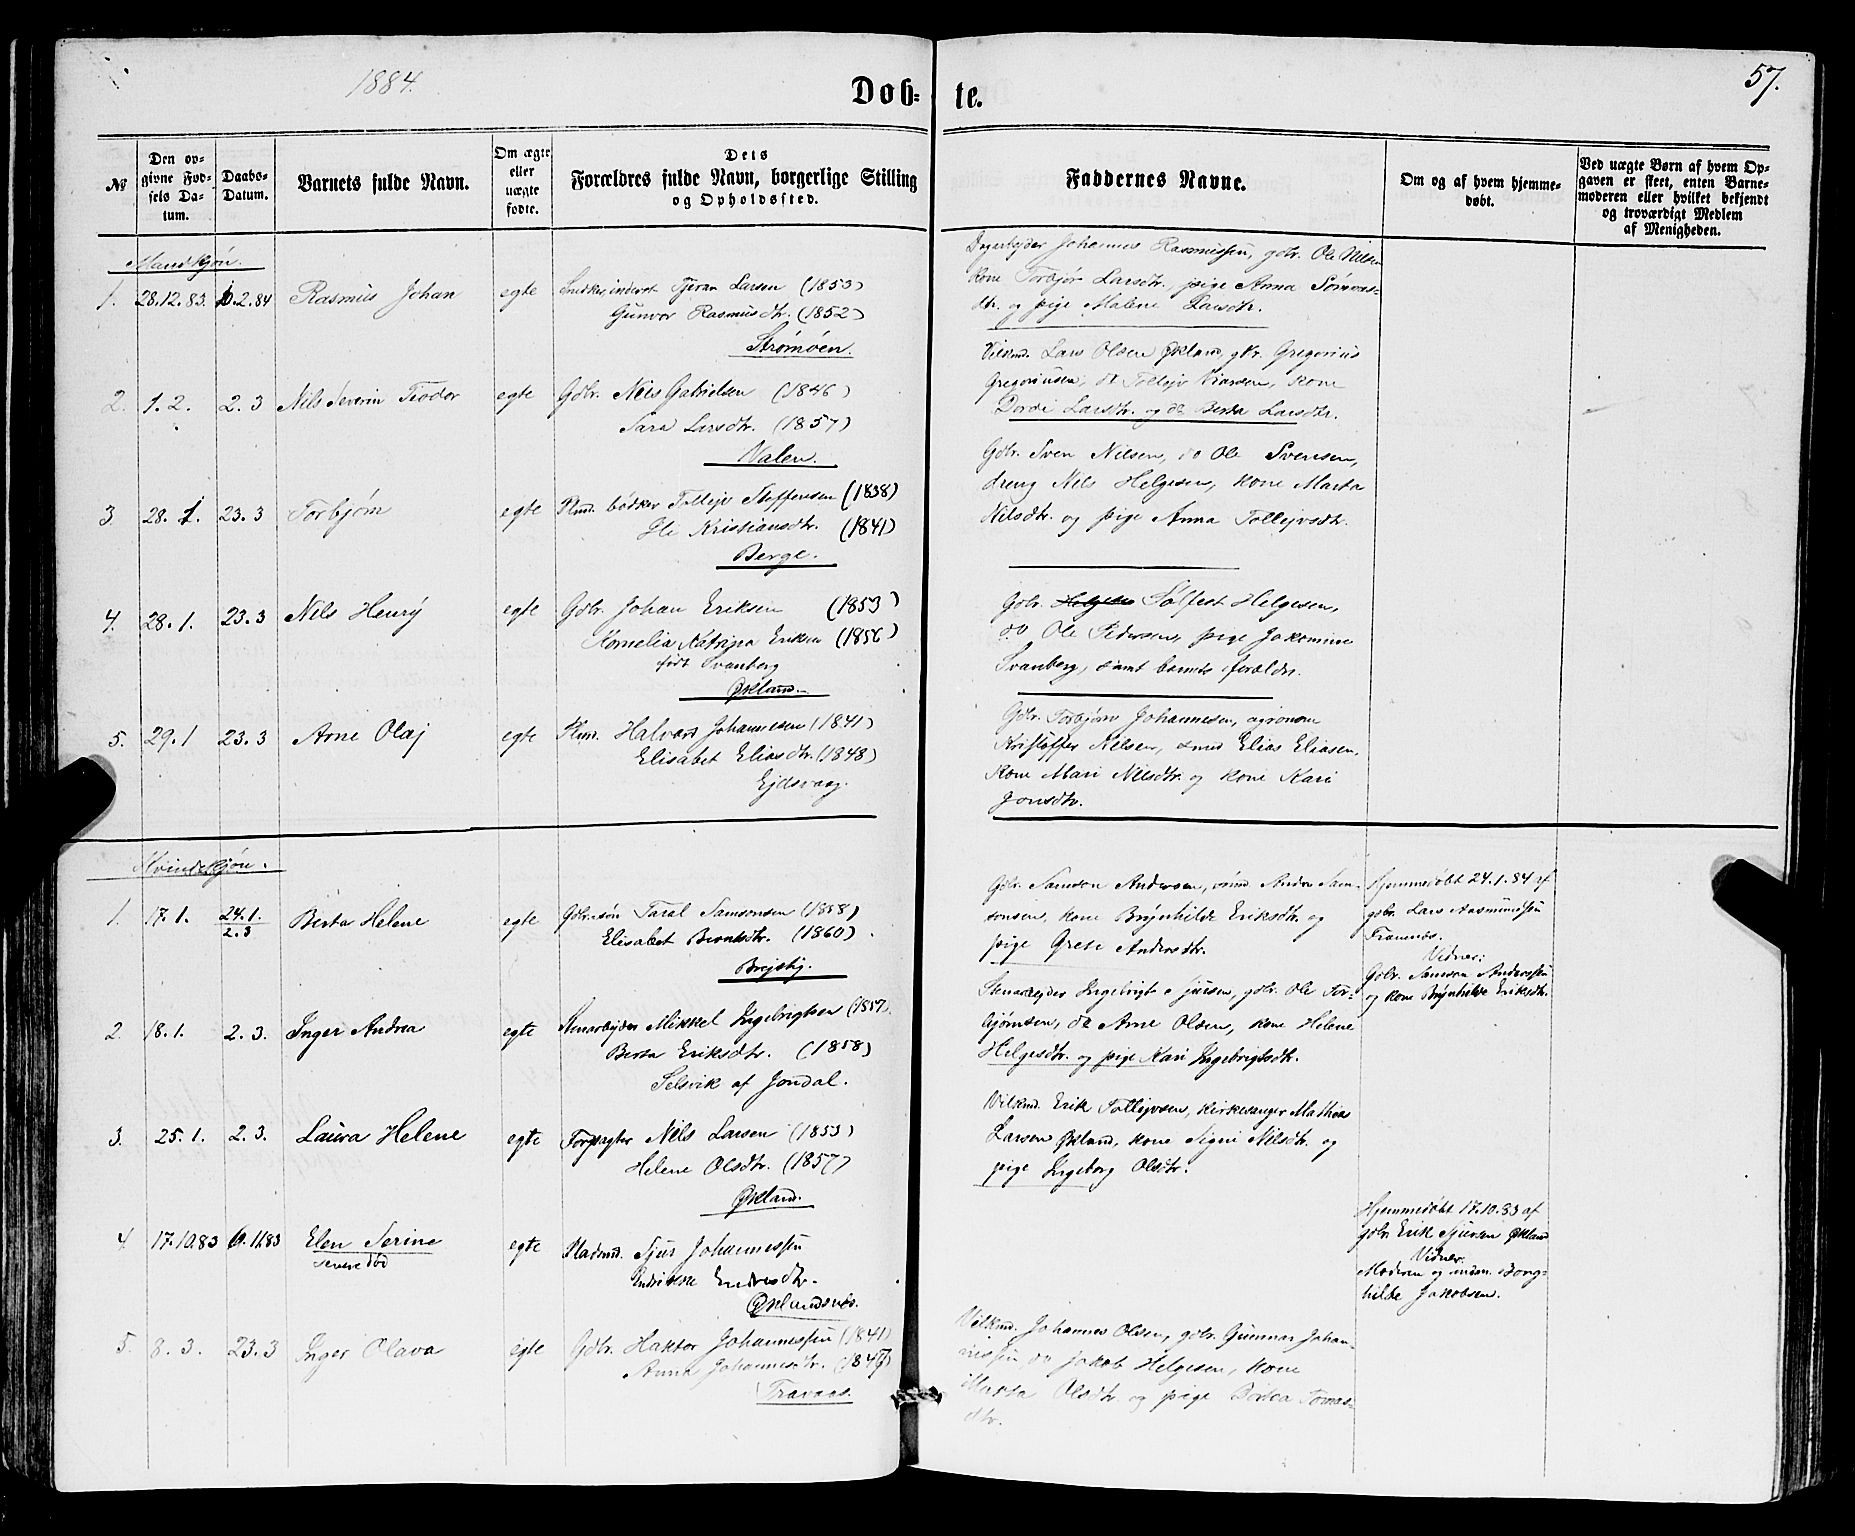 1884.
Døb-
te.
57.
№
Den op-
givne Fød-
sels Da-
tum.
Daabs-
Datum.
Barnets fulde Navn.
Om ægte
eller
uægte
fødte.
Dets
Forældres fulde Navn, borgerlige Stilling
og Opholdssted.
Faddernes Navne.
Om og af hvem hjemme-
døbt.
Ved uægte Børn af hvem Op-
gaven er skeet, enten Barne-
moderen eller hvilket bekjendt
og troværdigt Medlem
af Menigheden.
Mandkjøn.
1. 28.12.83. 10.2.84 Rasmus Johan egte
Snedker, inderst Tjeran Larsen (1853)
Gunvor Rasmusdtr. (1852)
Strømøen.
Dagarbejder Johannes Rasmussen, gdbr. Ole Nilsen
kone Torbjør Larsdtr. pige Anna
dtr. og pige Malene Larsdtr.
2. 1.2. 2.3 Nils Severin Teodor egte
Gdbr. Nils Gabrielsen (1846)
Sara Larsdtr. (1857)
Valen.
Vilkmd. Lars Olsen Økland, gbr. Gregorius
Gregoriusen, do Tollejv Knarsen, kone
Dordi Larsdtr. og do Berta Larsdtr.
3. 28.1. 23.3 Torbjørn egte
Plmd. bødker Tollejv Steffensen (1838)
Eli Kristiansdtr. (1841)
Berge.
Gdbr. Sven Nilsen, do Ole Svensen,
dreng Nils Helgesen, kone Marta
Nilsdtr. og pige Anna Tollejvsdtr.
4. 28.1. 23.3 Nils Henry egte
Gdbr. Johan Eriksen (1853)
Kornelia Katrina Eriksen (1856)
født Svanberg
Økland.
Gdbr. Helgesen Sølfest Helgesen,
do Ole Pedersen, pige Jakomine
Svanberg, samt barnets forældre.
5. 29.1 23.3 Arne Olaj egte
Plmd. Halvard Johannesen (1841)
Elisabet Eliasdtr. (1848)
Ejdsvaag.
Gdbr. Torbjørn Johannesen, agronom
Kristoffer Nilsen, smed Elias Eliasen,
kone Mari Nilsdtr. og kone Kari
Jonsdtr.
Kvindekjøn.
1. 17.1. 24.1. 2.3 Berta Helene egte
Gdbr.søn Taral Samsonsen (1858)
Elisabet Berntsdtr. (1860).
Brejstig.
Gdbr. Samson Andersen, Andre Sam-
sonsen, kone Brynhilde Eriksdtr. og
pige Grete Andersdtr.
Hjemmedøbt 24.1.84 af
gdbr. Lars Aasmundsen
Framnæs.
Vidner:
Gdbr. Samson Andersen
og kone Brynhilde Eriksdtr.
2. 18.1. 2.3. Inger Andrea egte
Stenarbejder Mikkel Ingebrigtsen (1857)
Berta Eriksdtr. (1858)
Selsvik af Jondal.
Stenarbejder Ingebrigt Sjursen, gdbr. Ole Tor-
bjørnsen, do Arne Olsen, kone Helene
Helgesdtr. og pige Kari Ingebrigtsdtr.
3. 25.1. 2.3. Laura Helene egte
Forpagter Nils Larsen (1853)
Helene Olsdtr. (1857)
Økland.
Vilkmd. Erik Tollejvsen, kirkesanger Mathias
Larsen Økland, kone Signi Nilsdtr. og
pige Ingeborg Olsdtr.
4. 17.10.83 6.11.83 Elen Serine egte
senere død
Pladsmd. Sjur Johannessen
Endresdtr.
Øklandsnes.
Hjemmedøbt 17.10.83 af
gdbr. Erik Sjursen Økland
Vidner:
Moderen og Borg-
hilde Jakobsen.
5. 8.3. 23.3 Inger Olava egte
Gdbr. Haktor Johannessen (1841)
Anna Johannesdtr. (1847)
Travaas.
Vilkmd. Johannes Olsen, gdbr. Gunnar Johan-
nessen do Jakob Helgesen, kone
Marta Olsdtr. og pige Tomas-
dtr.